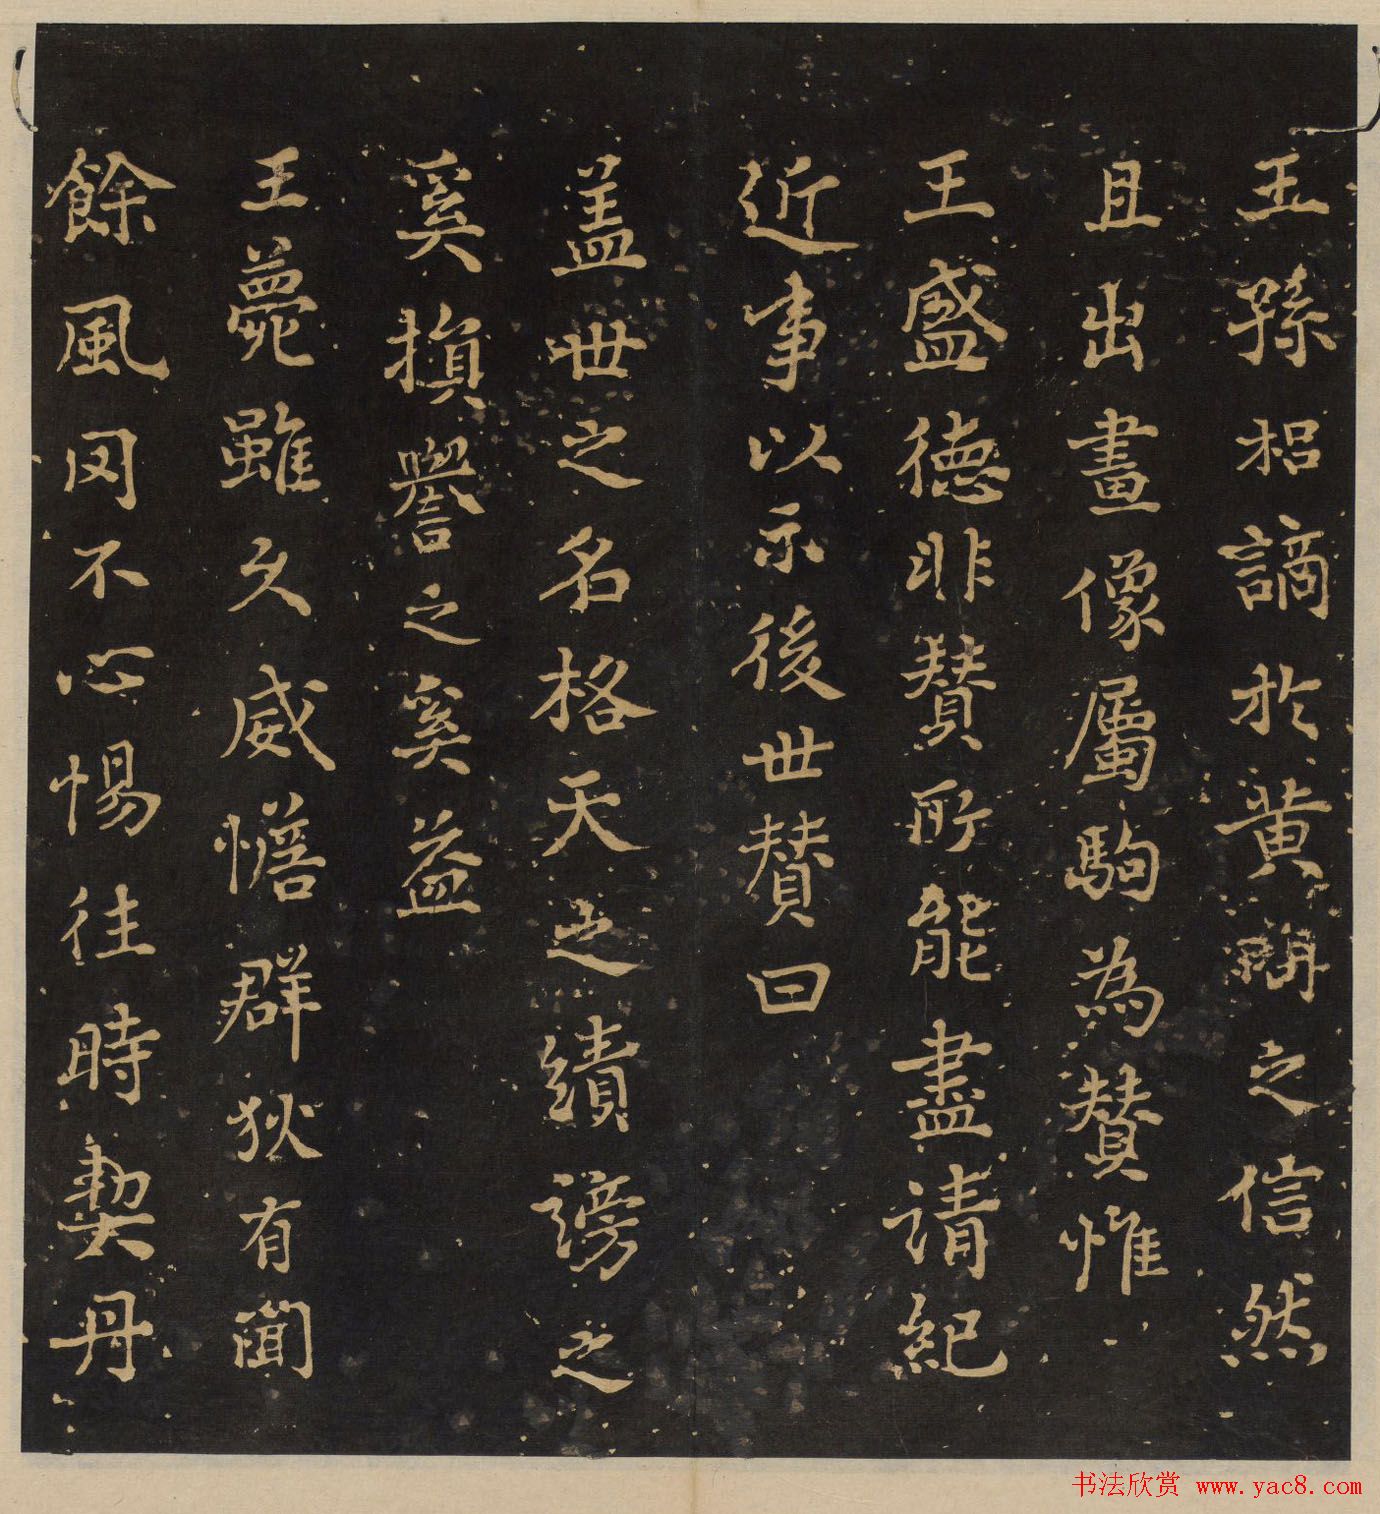 王孫柖謫於黄謂之信然
且出畫像屬駒為贊惟
王盛德非贊所能盡請紀
近事以示後世贊曰
盖世之名格天之績謗之
奚損譽之奚益
王薨雖久威憺群狄有聞
餘風罔不心惕往時契丹
书法欣赏 www.yac8.com